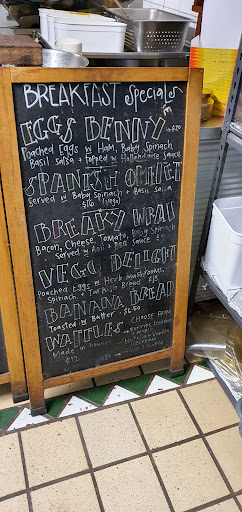 BREAKFAST Specials
EGGS BENNY $20
Poached Eggs w Ham, Baby Spinach
Basil Salsa + Topped w Hollandaise Sauce
SPANISH OMELET
Served w Baby Spinach + Basil Salsa
$16 (vego)
BREAKY WRAP
Bacon, Cheese, Tomato, Baby Spinach
Served w Aoli + BBQ Sauce
VEGO DELIGHT
Poached Eggs w Herb Mushrooms,
Spinach + Turkish Bread $18
BANANA BREAD
Toasted w Butter $6.50
WAFFLES CHOOSE FROM
Made in house!
$12